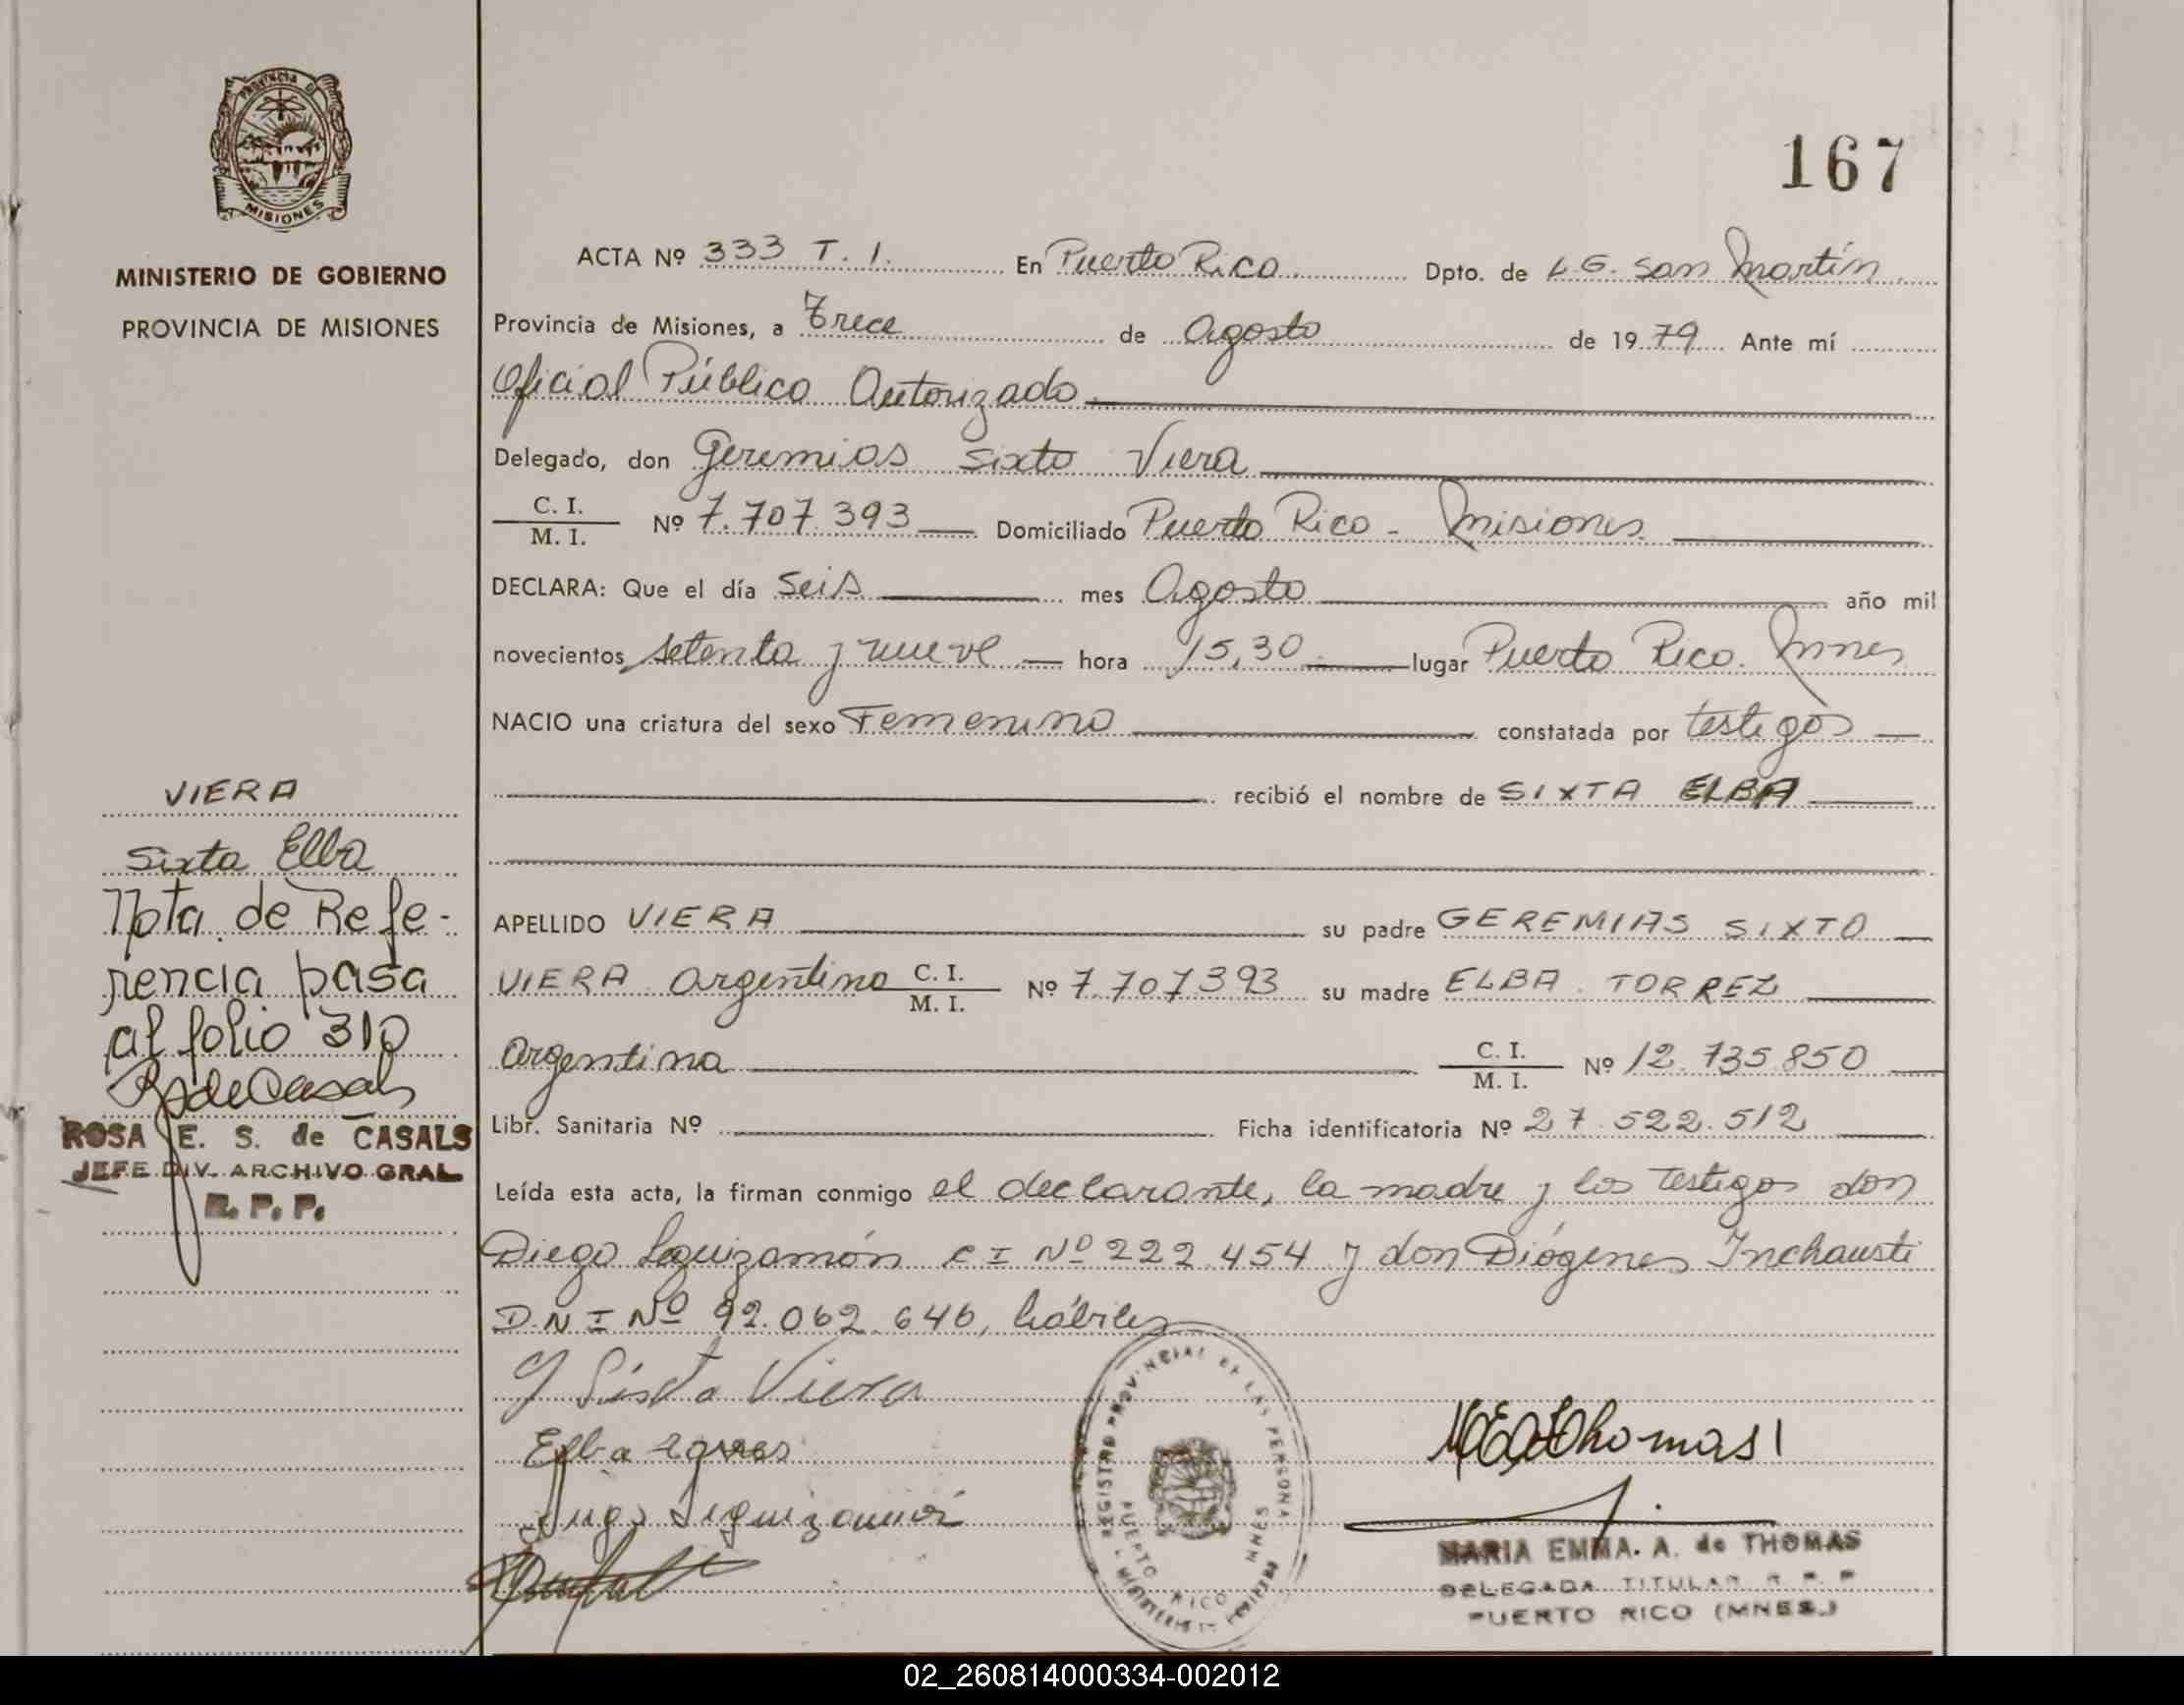 167
PROVINCIA DE
MISIONES
MINISTERIO DE GOBIERNO
PROVINCIA DE MISIONES
ACTA Nº 333 T. 1. En Puerto Rico Dpto. de L.G. San Martín
Provincia de Misiones, a Trece de Agosto de 1979 Ante mí
Oficial Público Autorizado
Delegado, don Geremias Sixto Viera
C. I.
M. I. Nº 7.707.393 Domiciliado Puerto Rico - Misiones
DECLARA: Que el día Seis mes Agosto año mil
novecientos setenta y nueve hora 15,30 lugar Puerto Rico. Mnes
NACIO una criatura del sexo Femenino constatada por testigos
recibió el nombre de SIXTA ELBA
APELLIDO VIERA su padre GEREMIAS SIXTO
VIERA Argentino C. I.
M. I. Nº 7.707.393 su madre ELBA TORREZ
Argentina C. I.
M. I. Nº 12.735.850
Libr. Sanitaria Nº Ficha identificatoria Nº 27.522.512
Leída esta acta, la firman conmigo el declarante, la madre y los testigos don
Diego Leguizamón C I Nº 222.454 y don Diógenes Inchausti
D.N.I Nº 92.062.646, hábiles
VIERA
Sixta Elba
Nota de Refe-
rencia pasa
al folio 310
R S de Casals
ROSA E. S. de CASALS
JEFE DIV. ARCHIVO GRAL
R. P. P.
G Sixto Viera
Elba
REGISTRO PROVINCIAL DE LAS PERSONAS
PUERTO RICO MNES
M E A de Thomas
MARIA EMMA. A. de THOMAS
DELEGADA TITULAR R. P. P.
PUERTO RICO (MNES.)
02_260814000334-002012